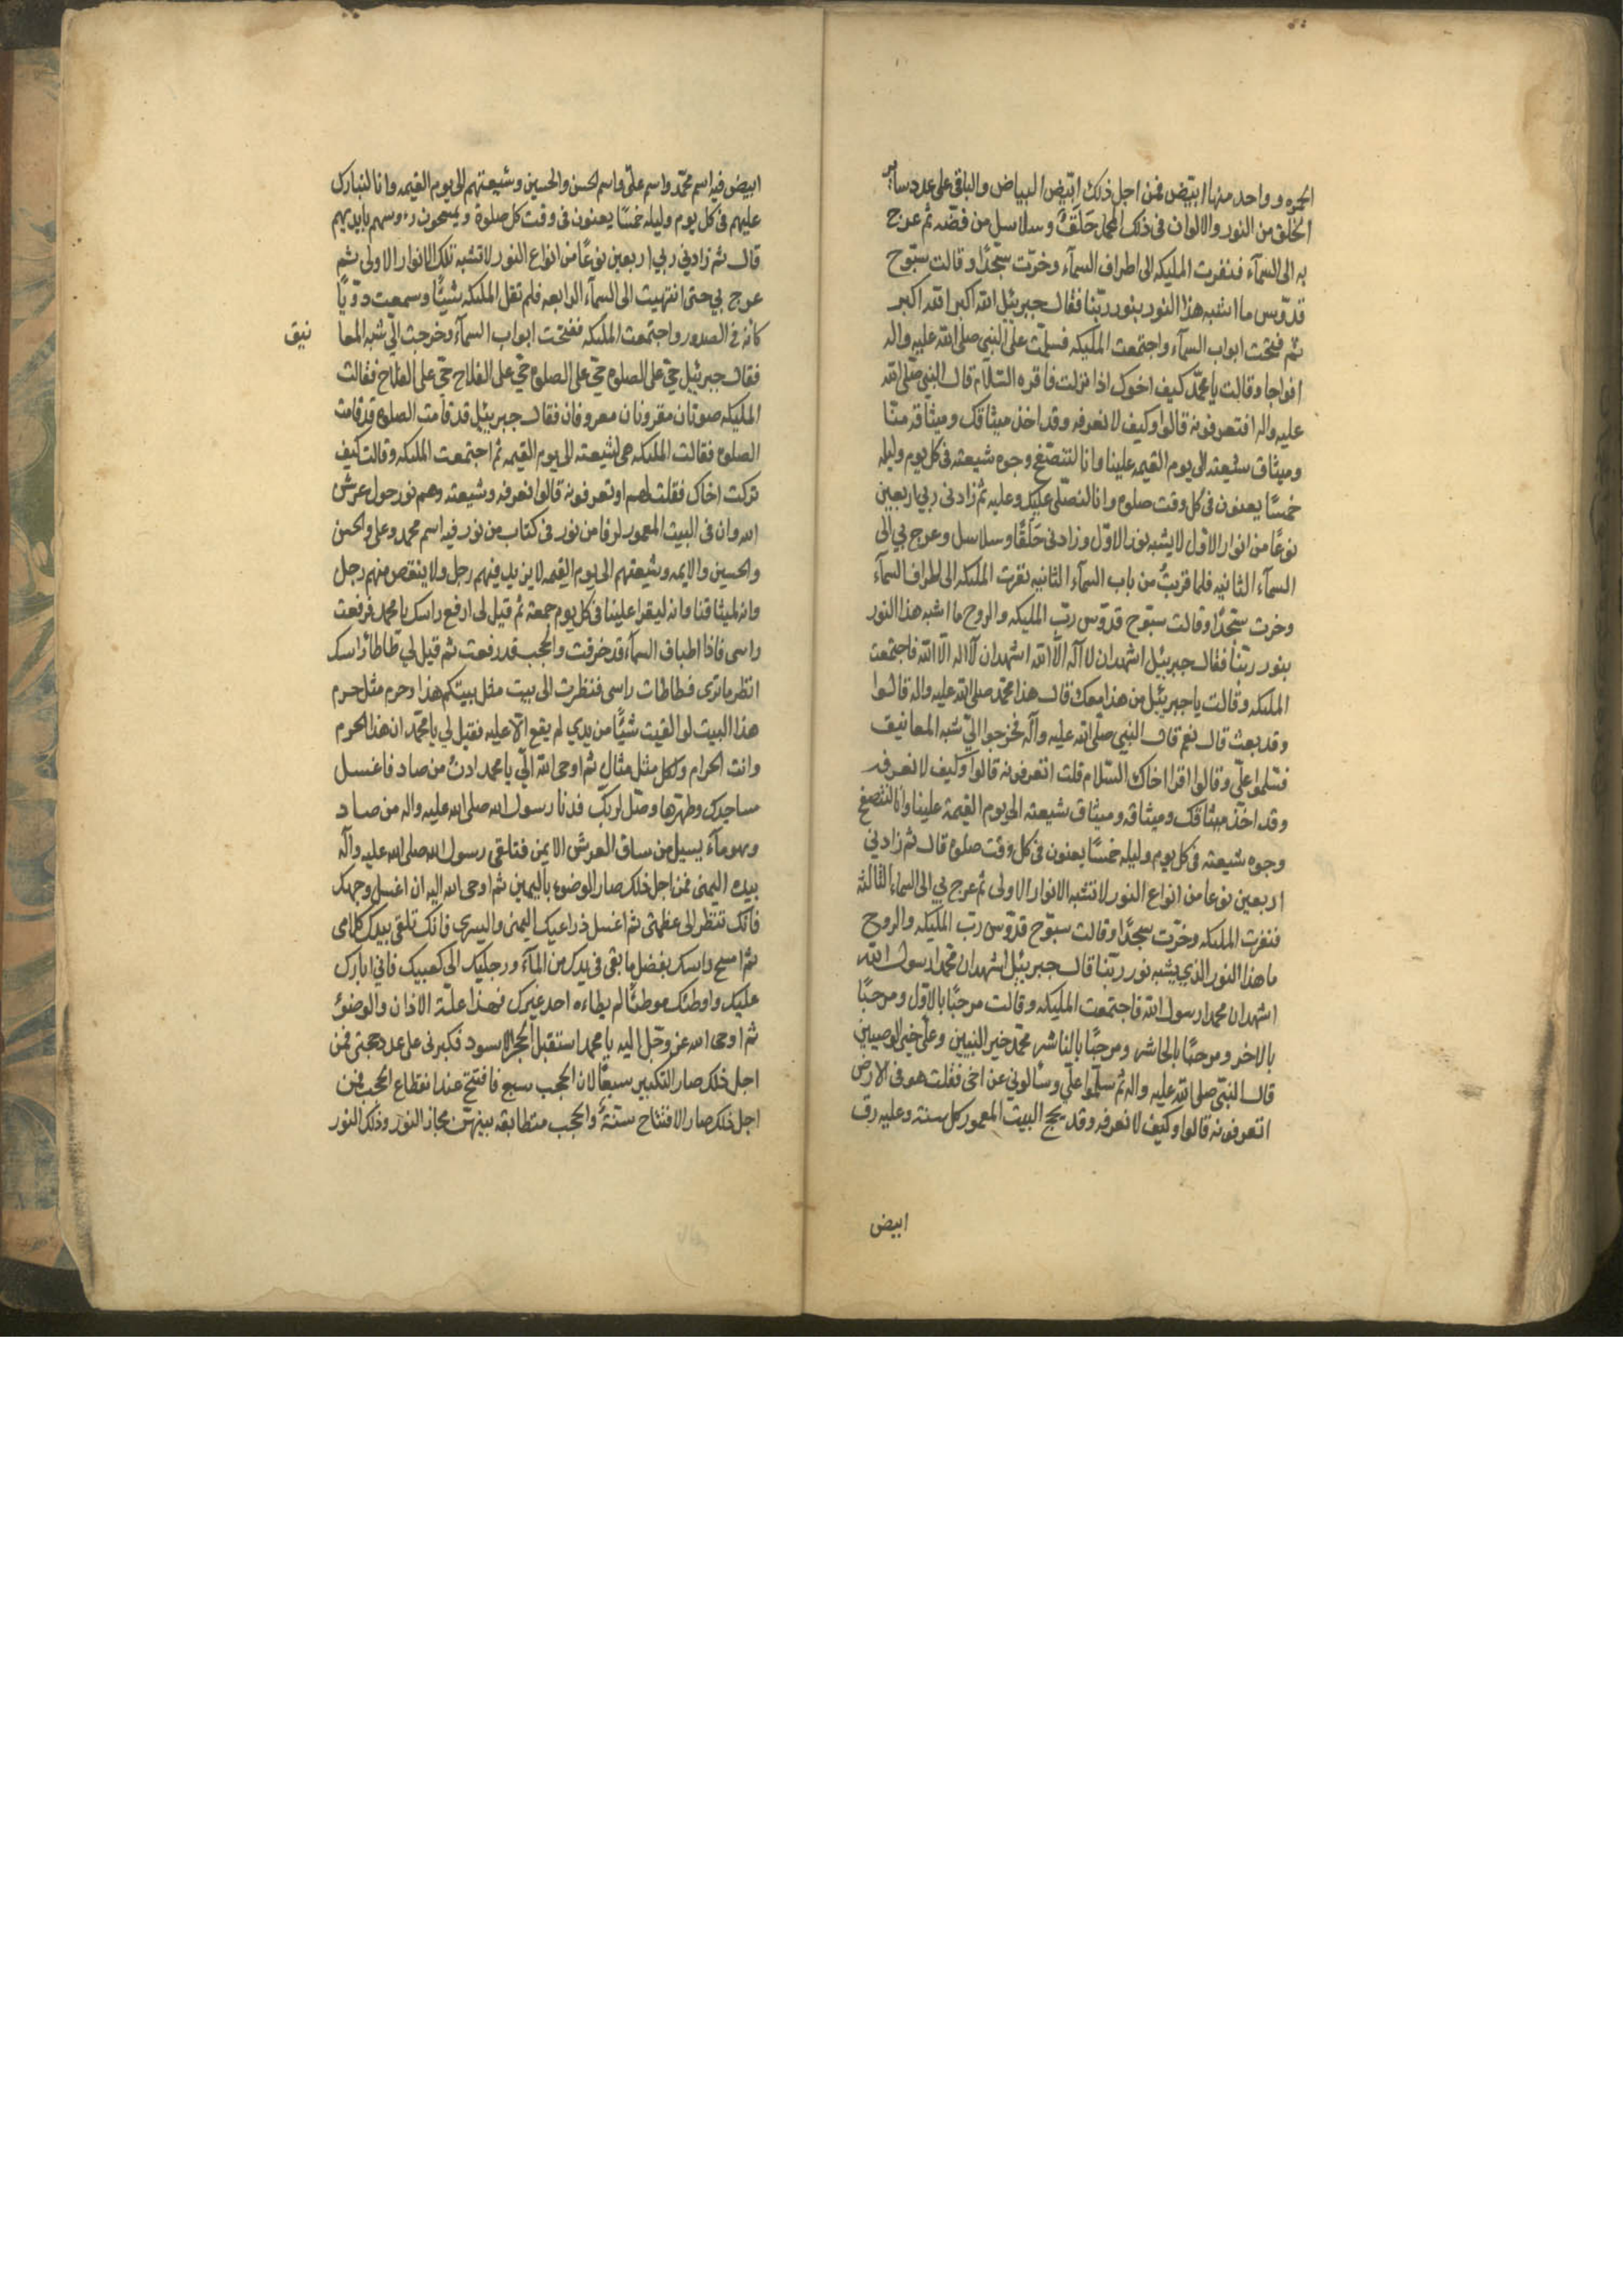 الحمره وواحد منها ابيض فمن اجل ذلك ابيّض البياض والباقى على عدد ساير
الخلق من النور والالوان فى ذلك المحمل حَلَقٌ وسلاسل من فضّه ثم عرج
به الى السمآء فنفرت المليكه الى اطراف السمآء وخرّت سجّدًا وقالت سبّوح
قدّوس ما اشبه هذا النور بنور ربّنا فقال جبرييل الله اكبر الله اكبر
ثم فتحت ابواب السمآء واجتمعت المليكه فسلّمت على النبى صلى الله عليه واله
افواجا وقالت يا محمّد كيف اخوك اذا نزلت فاقره السّلام قال النبي صلّى الله
عليه واله افتعرفونه قالوا وكيف لا نعرفه وقد اخذ ميثاقك وميثاقه منّا
وميثاق شيعته الى يوم القيمه علينا وانا لنتصفّح وجوه شيعته فى كل يوم وليله
خمسًا يعنون فى كل وقت صلوه وانا لنصلّى عليك وعليه ثم زادنى ربي اربعين
نوعًا من انوار الاول لا يشبه نور الاوّل وزادنى حَلَقًا وسلاسل وعرج بي الى
السمآء الثانيه فلما قربتُ من باب السمآء الثانيه نفرت المليكه الى اطراف السمآء
وخرت سجّدًا وقالت سبّوح قدّوس ربّ المليكه والروح ما اشبه هذا النور
بنور ربّنا فقال جبرييل اشهد ان لا آله الّا الله اشهد ان لا اله الّا الله فاجتمعت
المليكه وقالت يا جبرييل من هذا معك وقال هذا محمّد صلى الله عليه واله قالوا
وقد بعث قال نعم قال النبي صلّى الله عليه وآله فخرجوا اليّ شبه المعانيق
فسلّموا علّي وقالوا اقرا اخاك السّلام قلت اتعرفونه قالوا وكيف لا نعرفه
وقد اخذ ميثاقك وميثاقه وميثاق شيعته الى يوم القيمة علينا وانا لنتصفّح
وجوه شيعته فى كل يوم وليله خمسًا يعنون فى كل وقت صلوه قال ثم زادني
اربعين نوعا من انواع النور لا تشبه الانوار الاولى ثم عرج بي الى السماء الثالثه
فنفرت المليكه وخرّت سجدًا وقالت سبّوح قدّوس ربّ المليكه والروح
ما هذا النور الذي يشبه نور ربّنا قال جبرييل اشهد ان محمدا رسول الله
اشهد ان محمدا رسول الله فاجتمعت المليكه وقالت مرحبًا بالاوّل ومرحبًا
بالاخر ومرحبًا بالحاشر ومرحبًا بالناشر محمّد خير النبيين وعلّى خير الوصيين
قال النبّي صلى الله عليه واله ثم سلّموا علّي وسألوني عن اخى فقلت هو فى الارض
اتعرفونه قالوا وكيف لا نعرفه وقد يحج البيت المعمور كل سنة وعليه رق
ابيض
ابيض فيه اسم محمّد واسم علىّ واسم الحسن والحسين وشيعتهم الى يوم القيمه وانا لنبارك
عليهم فى كل يوم وليله خمسًا يعنون فى وقت كل صلوة ويمسحون رءوسهم بايديهم
قال ثم زادني ربي اربعين نوعًا من انواع النور لا تشبه تلك الانوار الاولى ثم
عرج بي حتى انتهيت الى السمآء الرابعه فلم تقل المليكه شيًّا وسمعت دويًّا
كانه فى الصدور واجتمعت المليكه ففتحت ابواب السمآء وخرجت اليّ شبه المعا
نيق
فقال جبرييل حىّ على الصلوه حىّ على الصلوه حىّ على الفلاح حىّ على الفلاح فقالت
المليكه صوتان مقرونان معروفان فقال جبرييل قد قامت الصلوه قد قامت
الصلوه فقالت المليكه هى لشيعته الى يوم القيمه ثم اجتمعت المليكه وقالت كيف
تركت اخاك فقلت لهم اوتعرفونه قالوا نعرفه وشيعته وهم نور حول عرش
الله وان فى البيت المعمور لرقا من نور فى كتاب من نور فيه اسم محمد وعلى والحسن
والحسين والايمه وشيعتهم الى يوم القيمه لا يزيد فيهم رجل ولا ينقص منهم رجل
وانه لميثاقنا وانه ليقرا علينا فى كل يوم جمعة ثم قيل لى ارفع راسك يا محمد فرفعت
راسى فاذا اطباق السمآء قد خرقت والحجب قد رفعت ثم قيل لي طاطأ راسك
انظر ما ترى فطاطات راسى فنظرت الى بيت مثل بيتكم هذا وحرم مثل حرم
هذا البيت لو القيت شيًّا من يدي لم يقع الّا عليه فقيل لي يا محمّد ان هذا الحرم
وانت الحرام ولكل مثل مثال ثم اوحى الله اليّ يا محمد ادنُ من صاد فاغسل
مساجدك وطهّرها وصّل لربّك فدنا رسول الله صلى الله عليه واله من صاد
وهو مآء يسيل من ساق العرش الايمن فتلقى رسول الله صلى الله عليه وآله
بيده اليمنى فمن اجل ذلك صار الوضوء باليمين ثم اوحى الله اليه ان اغسل وجهك
فانّك تنظر الى عظمتى ثم اغسل ذراعيك اليمنى واليسرى فانك تلقى بيدك كلامى
ثم امسح راسك بفضل ما بقى فى يدك من المآء ورجليك الى كعبيك فاني ابارك
عليك واوطئك موطئًا لم يطاءه احد غيرك فهذا علّة الاذان والوضوء
ثم اوحى الله عز وجّل اليه يا محمد استقبل الحجر الاسود فكبرنى على عدد حجبى فمن
اجل ذلك صار التكبير سبعًا لان الحجب سبع فافتتح عند انقطاع الحجب فمن
اجل ذلك صار الافتتاح سنّةً والحجب متطابقه بينهّن مجاز النور وذلك النور